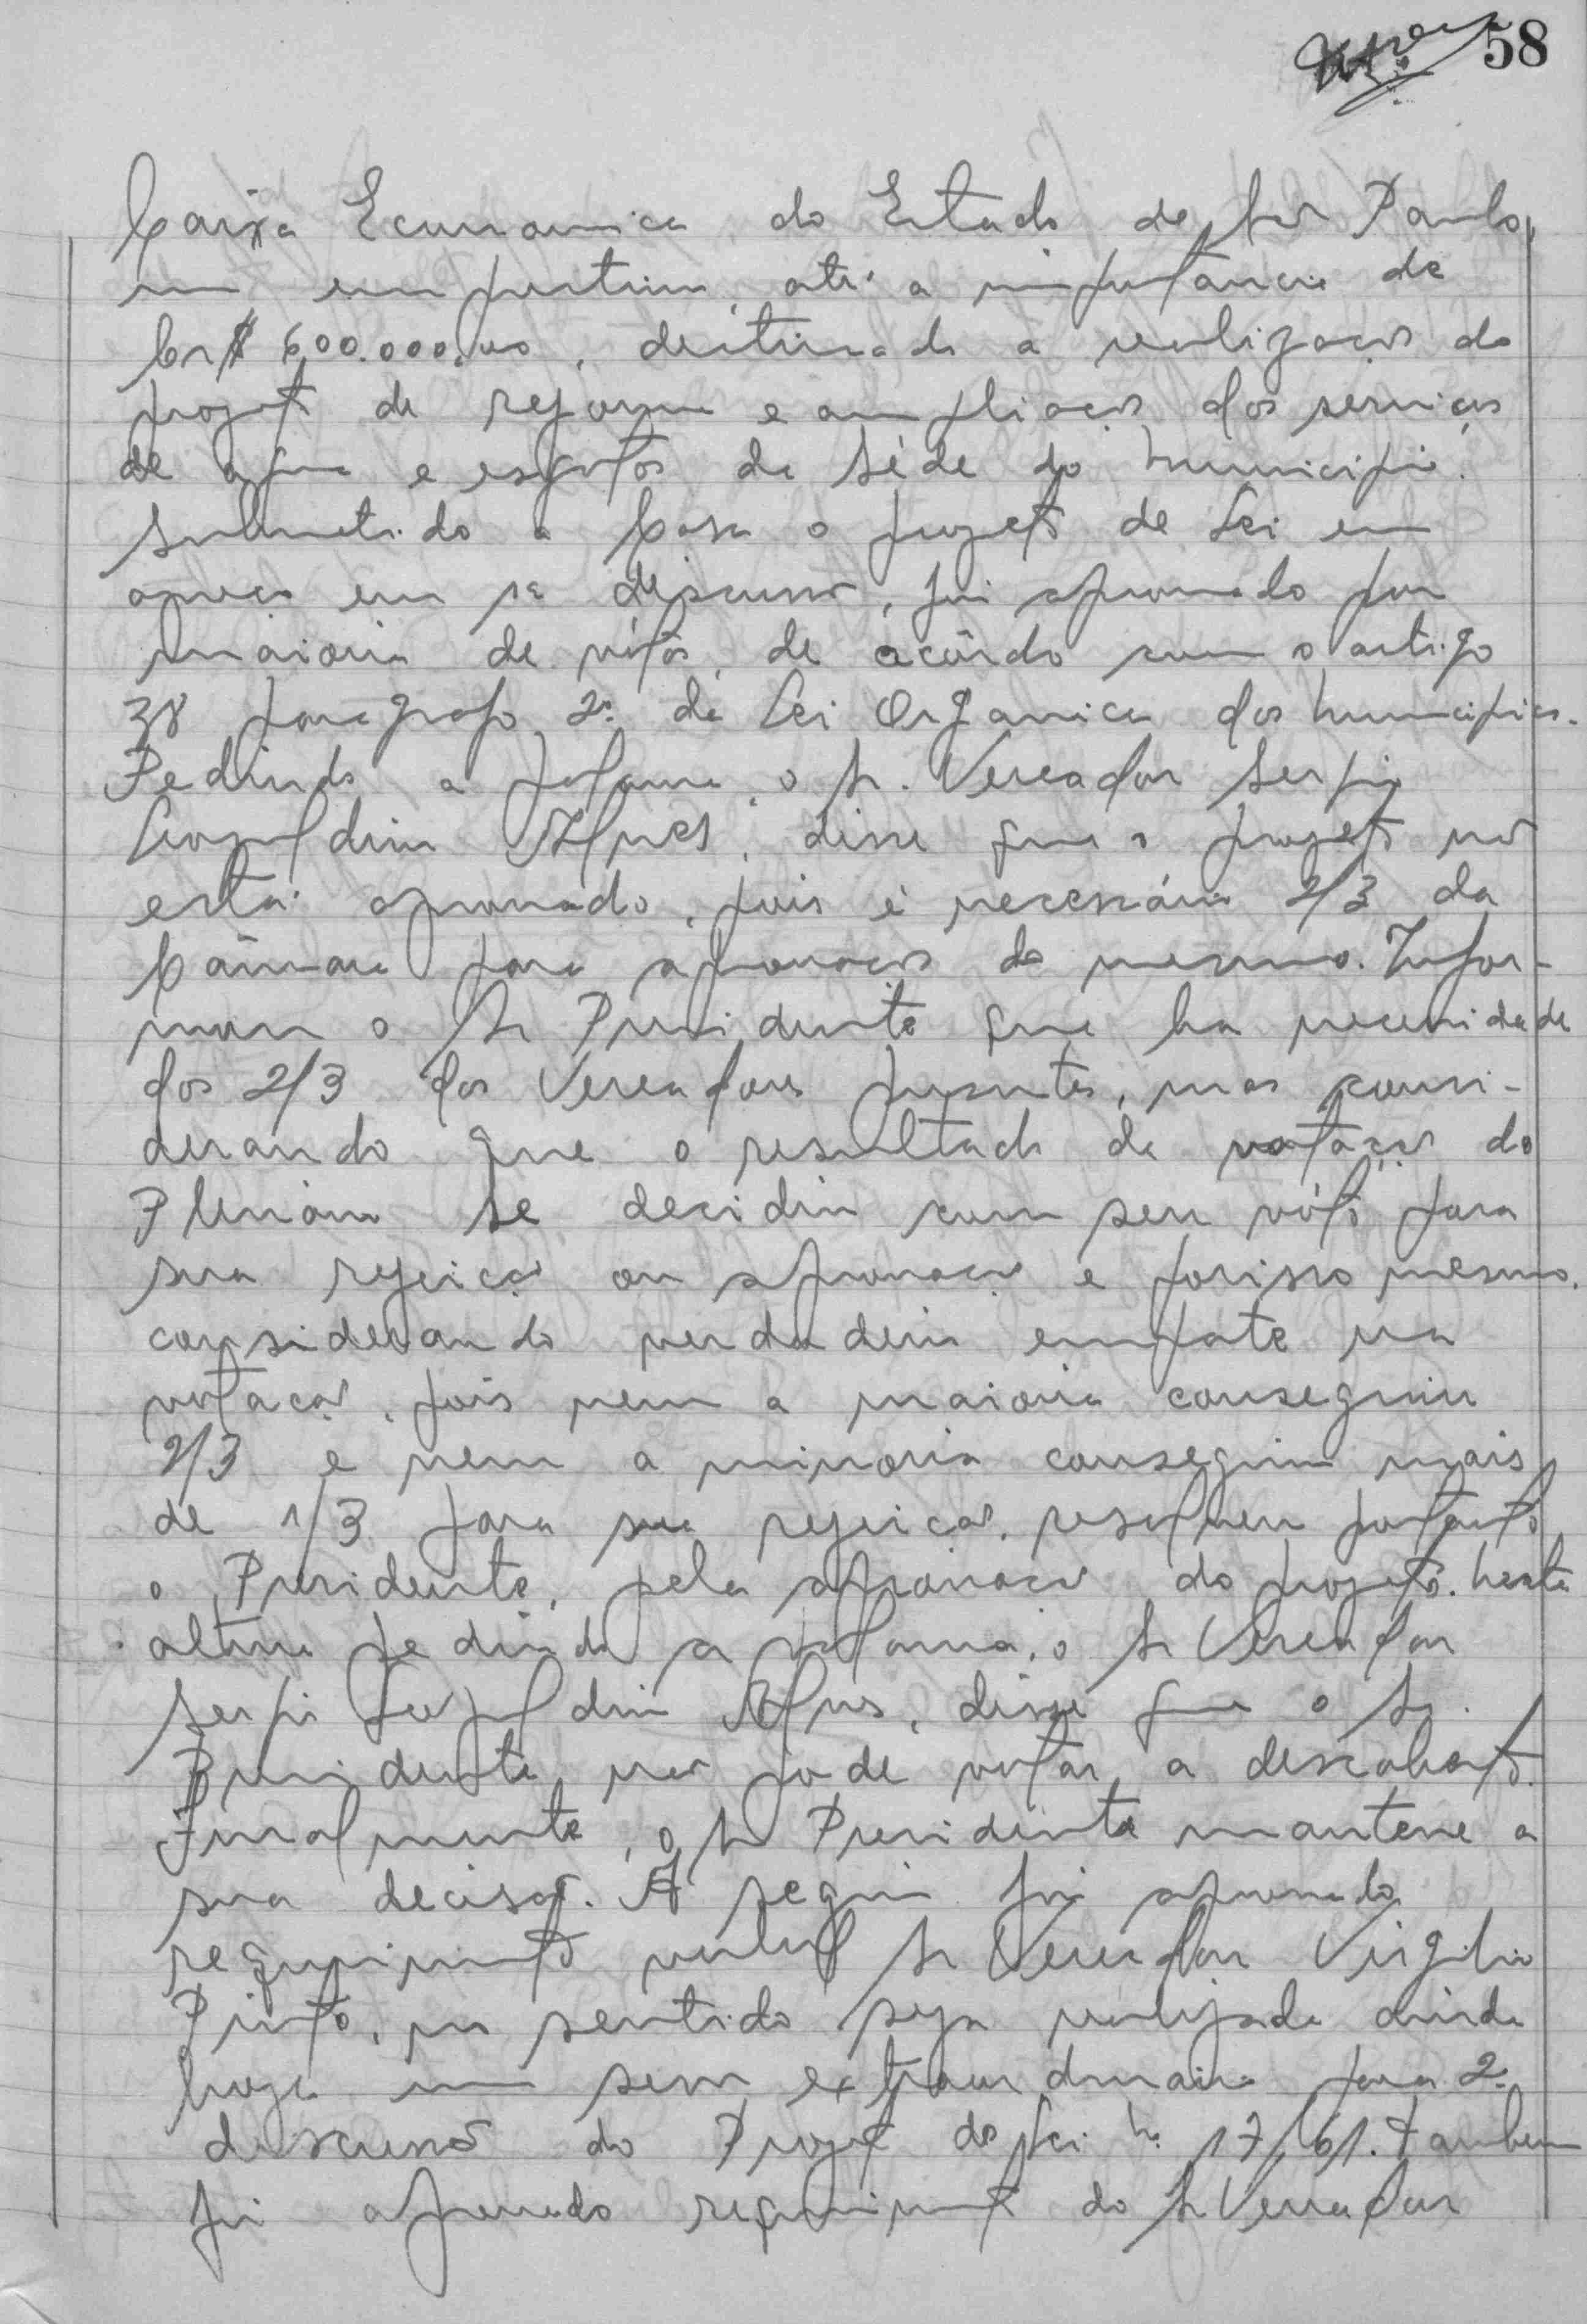 58
Caixa Economica do Estado de São Paulo,
um emprestimo, até a importância de
Cr$ 600.000,00, destinado a realização do
projeto de reforma e ampliação dos serviços
de agua e esgotos da séde do municipio.
Submetido a Casa o projeto de Lei em
apreço em 1ª discussão, foi aprovado por
maioria de vótos, de acôrdo com o artigo
38 paragrafo 2º da Lei Organica dos Municipios.
Pedindo a palavra, o Sr. Vereador Sergio
Leopoldino Alves, disse que o projeto não
está aprovado, pois é necessário 2/3 da
Câmara para aprovação do mesmo. Infor-
mou o Sr Presidente que ha necessidade
dos 2/3 dos Vereadores presentes, mas consi-
derando que o resultado da votação do
Plenário se decidiu com seu vóto para
sua rejeição ou aprovação e porisso mesmo,
considerando verdadeiro empate na
votação, pois nem a maioria conseguiu
2/3 e nem a minoria conseguiu mais
de 1/3 para sua rejeição, resolveu portanto
o Presidente, pela aprovação do projeto. Nesta
altura pedindo a palavra, o Sr Vereador
Sergio Leopoldino Alves, disse que o Sr.
Presidente não pode votar a descoberto.
Finalmente, o Sr Presidente manteve a
sua decisão. A seguir foi aprovado
requerimento verbal Sr Vereador Virgilio
Pinto, no sentido seja realizada ainda
hoje uma sessão extraordinaria para 2ª
discussão do Projeto de Lei nº 17/61. Tambem
foi aprovado requerimento do Sr Vereador